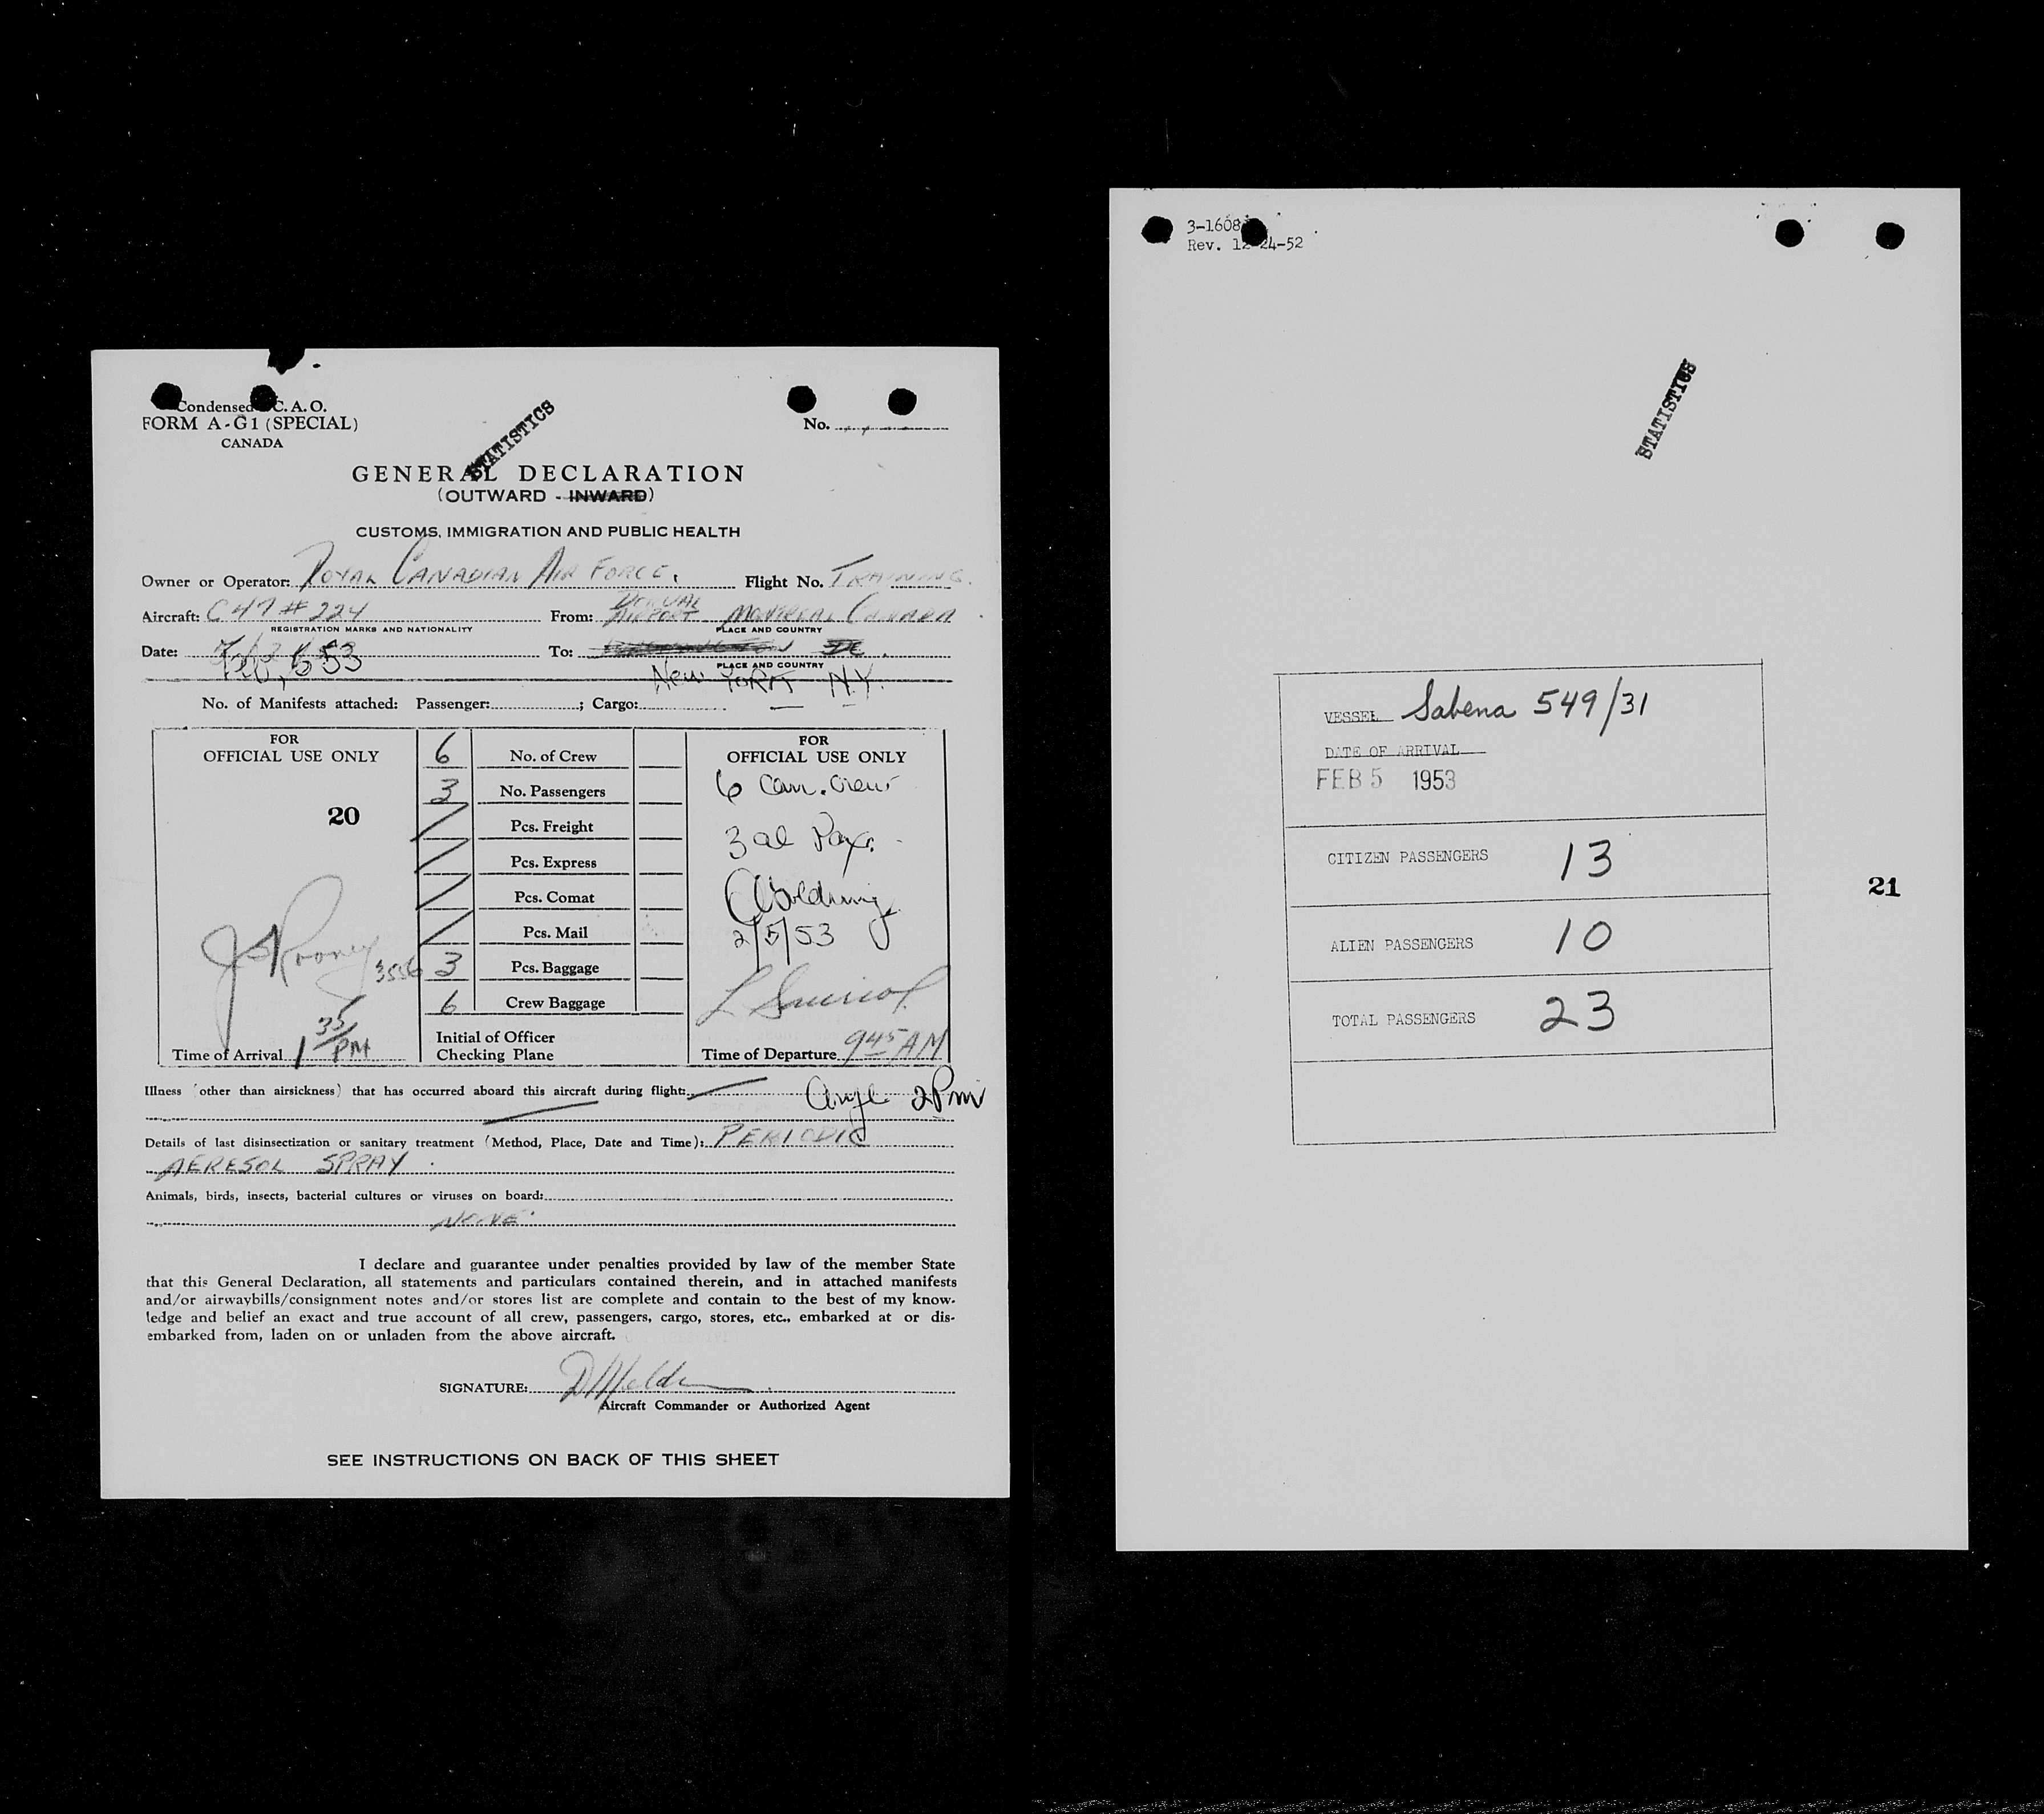 Condensed C. A. O.
FORM A-G1 (SPECIAL)
CANADA
No.
STATISTICS
GENERAL DECLARATION
(OUTWARD - INWARD)
CUSTOMS, IMMIGRATION AND PUBLIC HEALTH
Owner or Operator: ROYAL CANADIAN AIR FORCE. Flight No. TRAINING.
Aircraft: C47 # 224 From: DORVAL AIRPORT MONTREAL CANADA
REGISTRATION MARKS AND NATIONALITY PLACE AND COUNTRY
Date: Feb, 5 53 To:
PLACE AND COUNTRY
New YORK N.Y.
No. of Manifests attached: Passenger: ; Cargo:
FOR
OFFICIAL USE ONLY
20
J Rooney 3556
Time of Arrival 1 35/PM
6 No. of Crew
3 No. Passengers
Pcs. Freight
Pcs. Express
Pcs. Comat
Pcs. Mail
3 Pcs. Baggage
6 Crew Baggage
Initial of Officer
Checking Plane
FOR
OFFICIAL USE ONLY
6 Can. Crew
3 al Pax.
2/5/53
Time of Departure 945 AM
Illness (other than airsickness) that has occurred aboard this aircraft during flight:
2 Pm
Details of last disinsectization or sanitary treatment (Method, Place, Date and Time): PERIODIC
AERESOL SPRAY.
Animals, birds, insects, bacterial cultures or viruses on board:
NONE.
I declare and guarantee under penalties provided by law of the member State
that this General Declaration, all statements and particulars contained therein, and in attached manifests
and/or airwaybills/consignment notes and/or stores list are complete and contain to the best of my know-
ledge and belief an exact and true account of all crew, passengers, cargo, stores, etc., embarked at or dis-
embarked from, laden on or unladen from the above aircraft.
SIGNATURE:
Aircraft Commander or Authorized Agent
SEE INSTRUCTIONS ON BACK OF THIS SHEET
3-1608
Rev. 12-24-52
STATISTICS
VESSEL Sabena 549/31
DATE OF ARRIVAL
FEB 5 1953
CITIZEN PASSENGERS 13
21
ALIEN PASSENGERS 10
TOTAL PASSENGERS 23